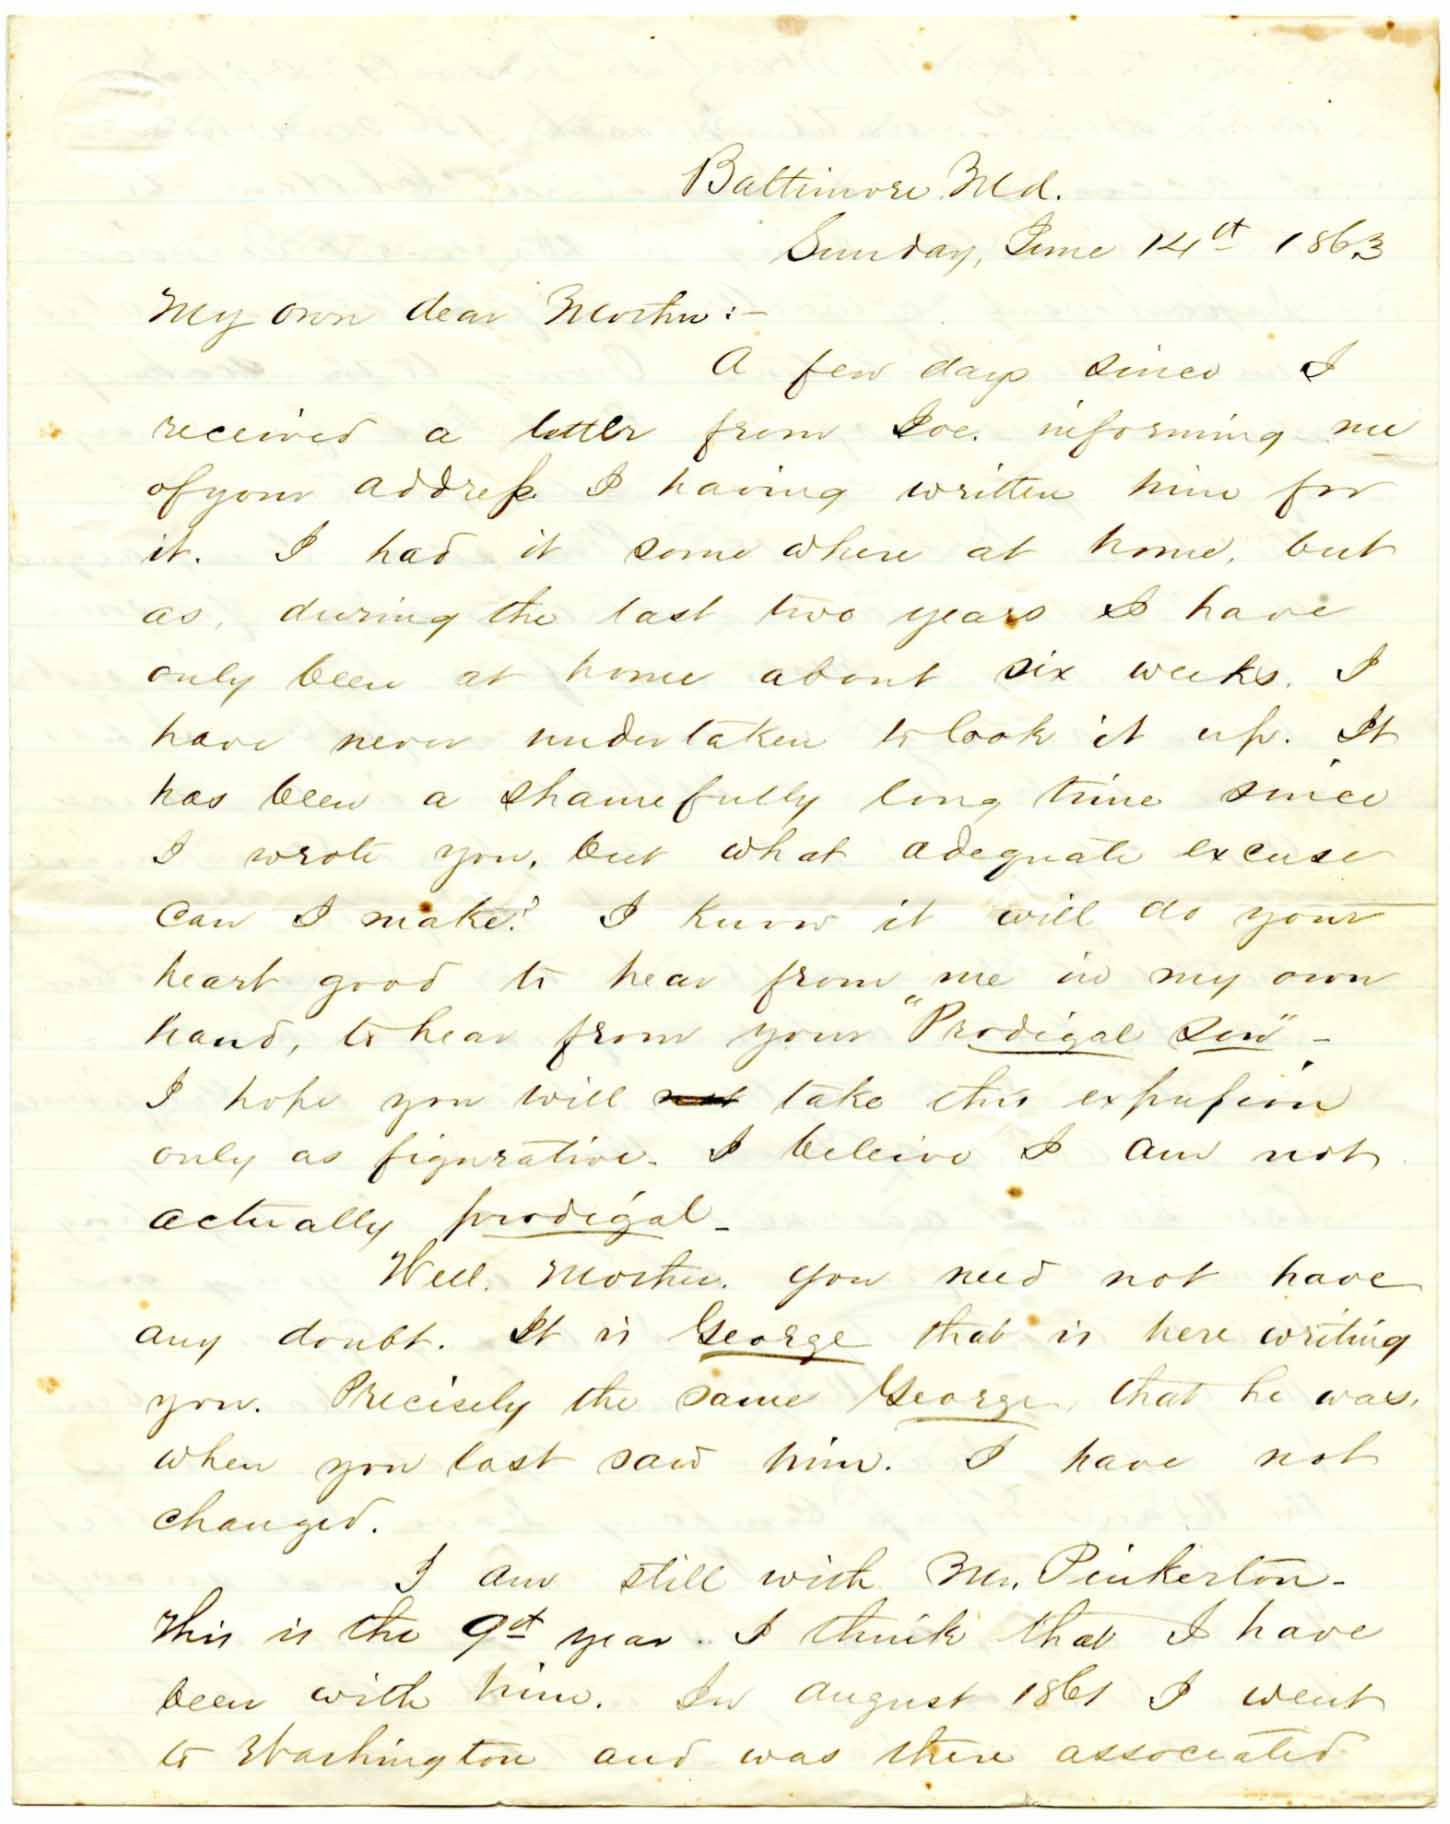 Baltimore Md.
Sunday, June 14th 1863
My own dear Mother:-
A few days since I
received a letter from Joe. informing me
of your address. I having written him for
it. I had it some where at home, but
as, during the last two years I have
only been at home about six weeks. I
have never undertaken to look it up. It
has been a shamefully long time since
I wrote you, but what adequate excuse
can I make? I know it will do your
heart good to hear from me in my own
hand, to hear from your "Prodigal Son" -
I hope you will not take this expression
only as figurative. I beleive I am not
actually prodigal -
Well. Mother. you need not have
any doubt. It is George that is here writing
you. Precisely the same George, that he was,
when you last saw him. I have not
changed.
I am still with Mr. Pinkerton -
This is the 9th year. I think that I have
been with him. In August 1861 I went
to Washington and was there associated